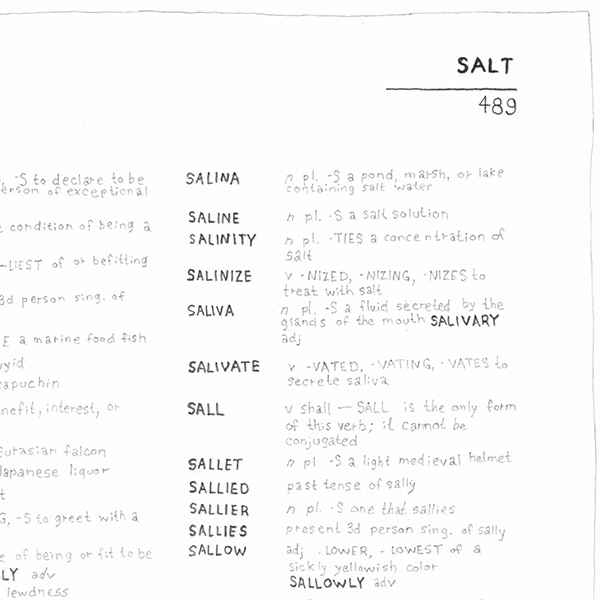 SALT
489
, -S to declare to be
erson of exceptional
condition of being a
-LIEST of or befitting
3d person sing. of
E a marine food fish
yyid
capuchin
nefit, interest, or
Eurasian falcon
Japanese liquor
t
G, -S to greet with a
e of being or fit to be
LY adv
lewdness
SALINA n pl. -S a pond, marsh, or lake
containing salt water
SALINE n pl. -S a salt solution
SALINITY n pl. -TIES a concentration of
salt
SALINIZE v -NIZED, -NIZING, -NIZES to
treat with salt
SALIVA n pl. -S a fluid secreted by the
glands of the mouth SALIVARY
adj
SALIVATE v -VATED, -VATING, -VATES to
secrete saliva
SALL v shall — SALL is the only form
of this verb; it cannot be
conjugated
SALLET n pl -S a light medieval helmet
SALLIED past tense of sally
SALLIER n pl. -S one that sallies
SALLIES present 3d person sing. of sally
SALLOW adj -LOWER, -LOWEST of a
sickly yellowish color
SALLOWLY adv